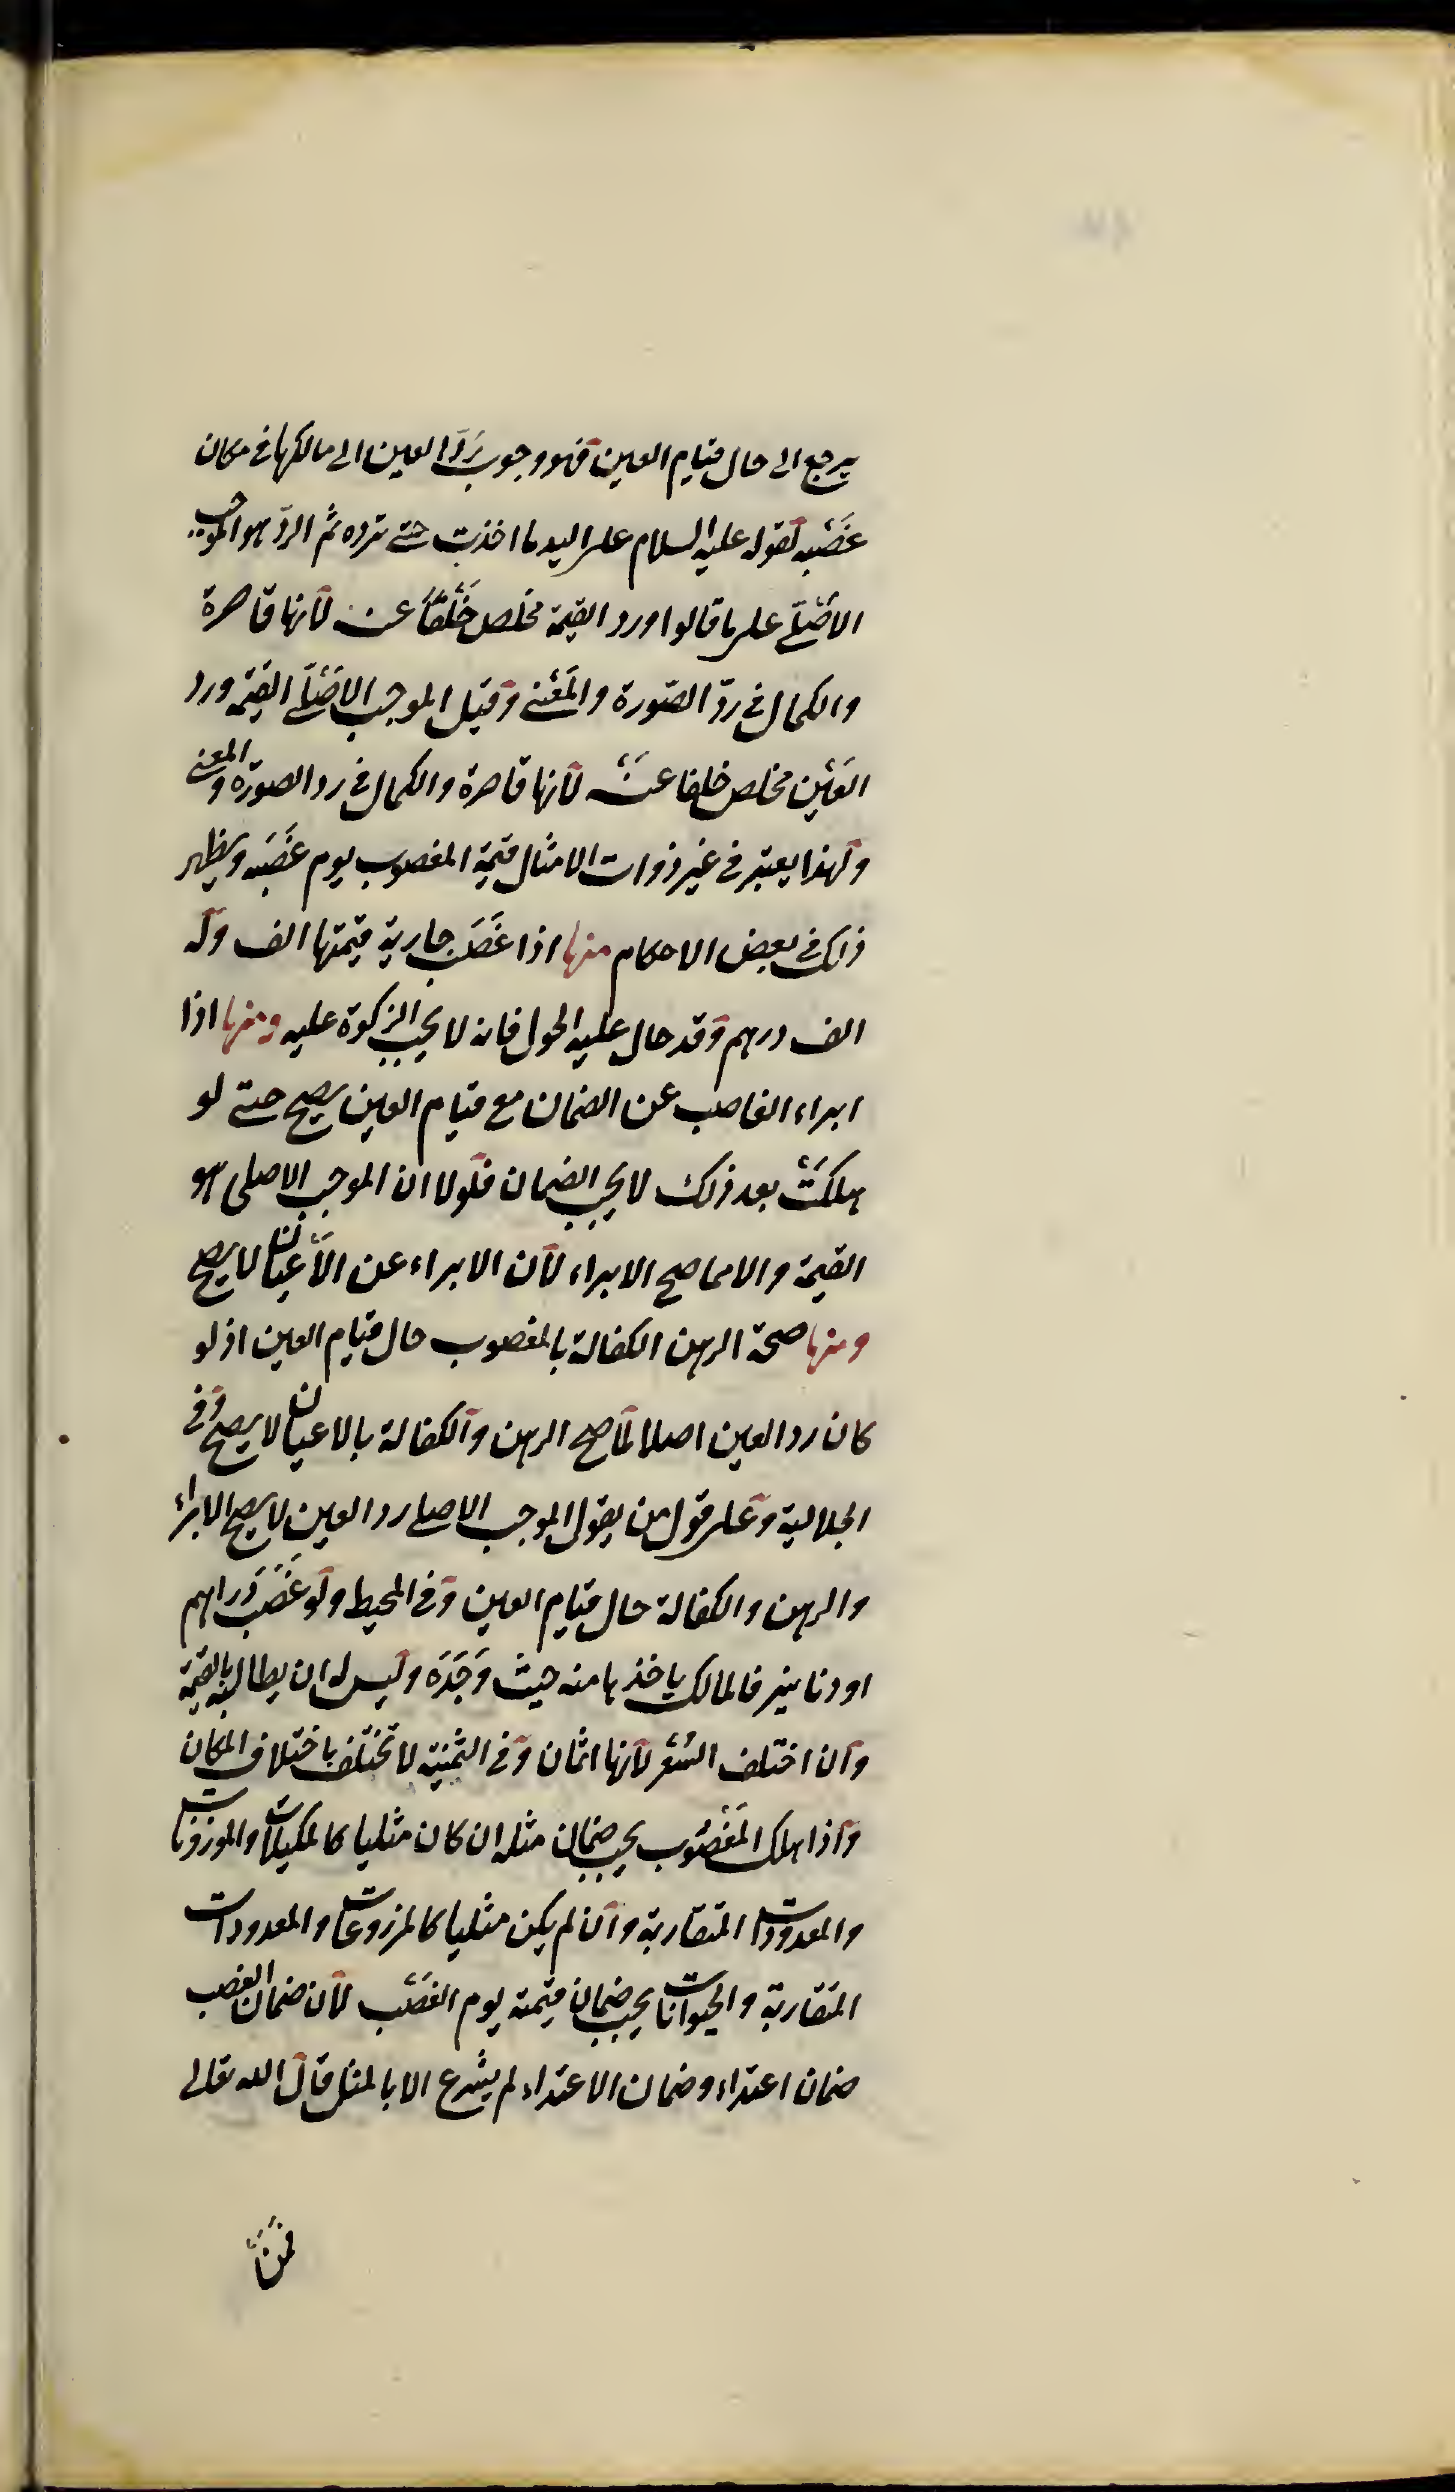 يرجع الى حال قيام العين فهو وجوب رَدّ العين الى مالكها فى مكان
غَصْبه لقوله عليه السلام على اليد ما اخذت حتى ترده ثم الردّ هو الموجب
الاَصْلّى على ما قالوا ورد القيمة مخلص خَلَفًا عنه لانها قاصرة
والكمال فى ردّ الصّورة والمَعْنى وقيل الموجب الاَصْلّى القيمة ورد
العَيْن مخلص خلفا عنه لانها قاصرة والكمال فى رد الصورة والمعنى
ولهذا يعتبر فى غير ذوات الامثال قيمة المغصوب يوم غَصْبَه ويظهر
ذلك فى بعض الاحكام منها اذا غَصَبَ جارية قيمتها الف وله
الف درهم وقد حال عليه الحول فانه لا يجب الزكوة عليه ومنها اذا
ابراء الغاصب عن الضمان مع قيام العين يصح حتى لو
هلكَتْ بعد ذلك لا يجب الضمان فلولا ان الموجب الاصلى هو
القيمة والا لما صح الابراء لان الابراء عن الاَعْيان لا يصح
ومنها صحة الرهن الكفالة بالمغصوب حال قيام العين اذ لو
كان رد العين اصلا لما صح الرهن والكفالة بالاعيان لا يصح وفى
الجلالية وعلى قول من يقول الموجب الاصلى رد العين لا يصح الابراء
والرهن والكفالة حال قيام العين وفى المحيط ولو غَصَبَ دَراهم
او دنانير فالمالك ياخذها منه حيث وَجَدَه وليس له ان يطالبه بالقيمة
وان اختلف السْعر لانها اثمان وفى الثمنية لا تختلف باختلاف المكان
واذا هلك المَغْصُوب يجب ضمان مثله ان كان مثليا كالمكيلات والموزونات
والمعدودات المتقاربة وان لم يكن مثليا كالمزروعات والمعدودات
المتقاربة والحيوانات يجب ضمان قيمته يوم الغَصْب لان ضمان الغصب
ضمان اعتداء وضمان الاعتداء لم يشرع الا بالمثل قال الله تعالى
فمن